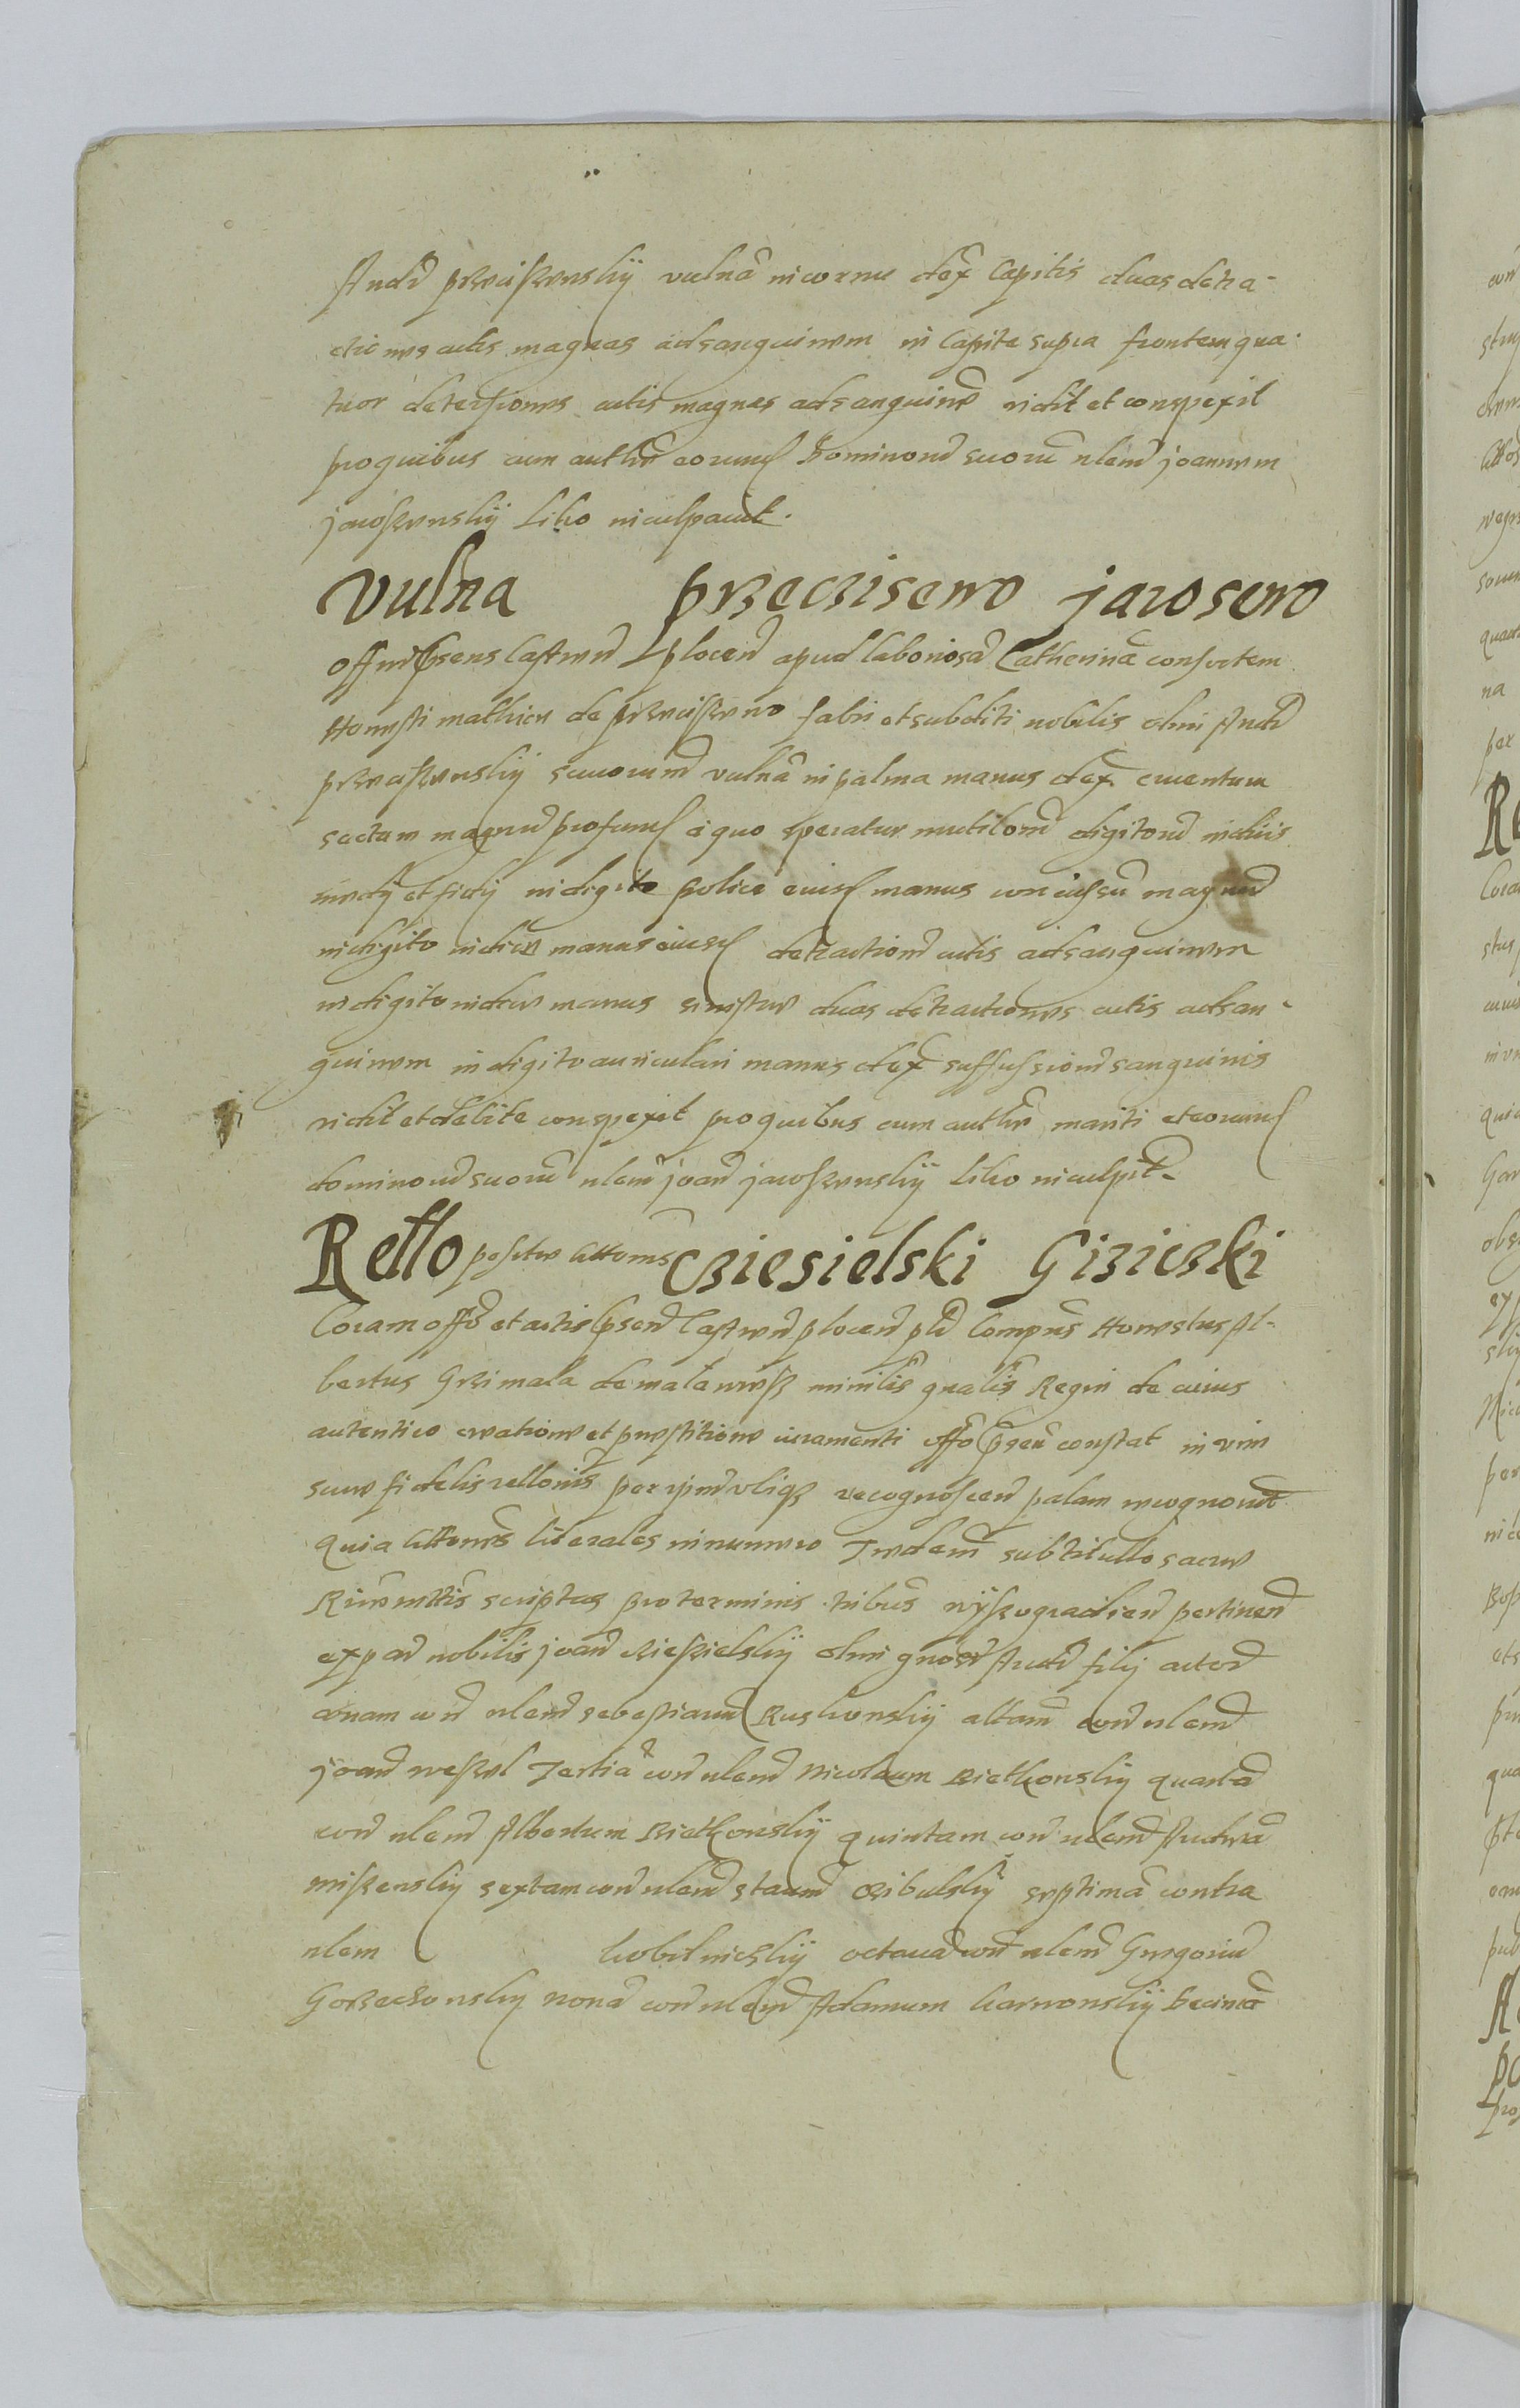 Andr̃ przeciszewskÿ vulnã in cornu dex̃ Capitis duas detra-
ctiones cutis magnas ad sanguinem in Capite supra frontem qua-
tuor detersiones cutis magnas ad sanguinẽ vidit et conspexit
pro quibus cum authẽ eorund Dominorũ suorũ nlem̃ joannem
jaroszewskÿ Litro inculpavit.
Vulna przeciszewo jaroszewo
Offm̃ p̃sens Castren̄ plocen̄ apud laboriosã Catherinã consortem
Honesti mathiae de przeciszewo fabri et subditi nobilis olim Andr̃
przeciszewskÿ svcorum̃ vulnã in palma manus dex̃ cruentum
sectum magnũ profund̃ a quo speratur mutilom̃ digitorũ
in digito police eiusd̃ manus concussũ magnũ
in digito indice manus eiusd̃ detractionẽ cutis ad sanguinem
in digito indice manus sinistrae duas detractiones cutis ad san-
guinem in digito auriculari manus dex̃ suffusionẽ sanguinis
vidit et debite conspexit pro quibus cum authẽ mariti et eorund̃
dominorũ suorũ nlem̃ joan̄ jaroszewskÿ litro inculpit̃
Rello positae littomis Cziesielski Giziczki
Coram offo et actis p̃sen̄ Castren̄ plocen̄ pld̃ Compns̃ Honestus Al-
bertus Grzimala de malenuß minilis̃ gnalis̃ Regni de cuius
autentico creatione et praestitione iuramenti offo p̃sen̄ constat in vim
suae fidelis rellonis per ipm̃ vliqz recognoscen̄ palam recognovit
Quia littones̃ literales in numero Tredem̃ sub titullo sacrae
Riae mttis̃ scriptas pro terminis tribus̃ wÿszogradien̄ pertinen̄
ex par̄ nobilis joan̄ Cieszielskÿ olim gnosi Andr̃ filij actor̃
vnam con̄ nlem̃ sebestianũ Ruskowskÿ altam̃ con̄ nlem̃
joan̄ weszel Tertiã con̄ nlem̃ Nicolaum Rietkowskÿ quartã
con̄ nlem̃ Albertum Rietkowskÿ quintam con̄ nlem̃ Andreã
miszewskÿ sextam con̄ nlem̃ stanũ Czibulskÿ septimã contra
nlem kobilniczkÿ octavã con̄ nlem̃ Gregoriũ
Gorzechowskÿ nonã con̄ nlem̃ Adamum karwowskÿ decimã